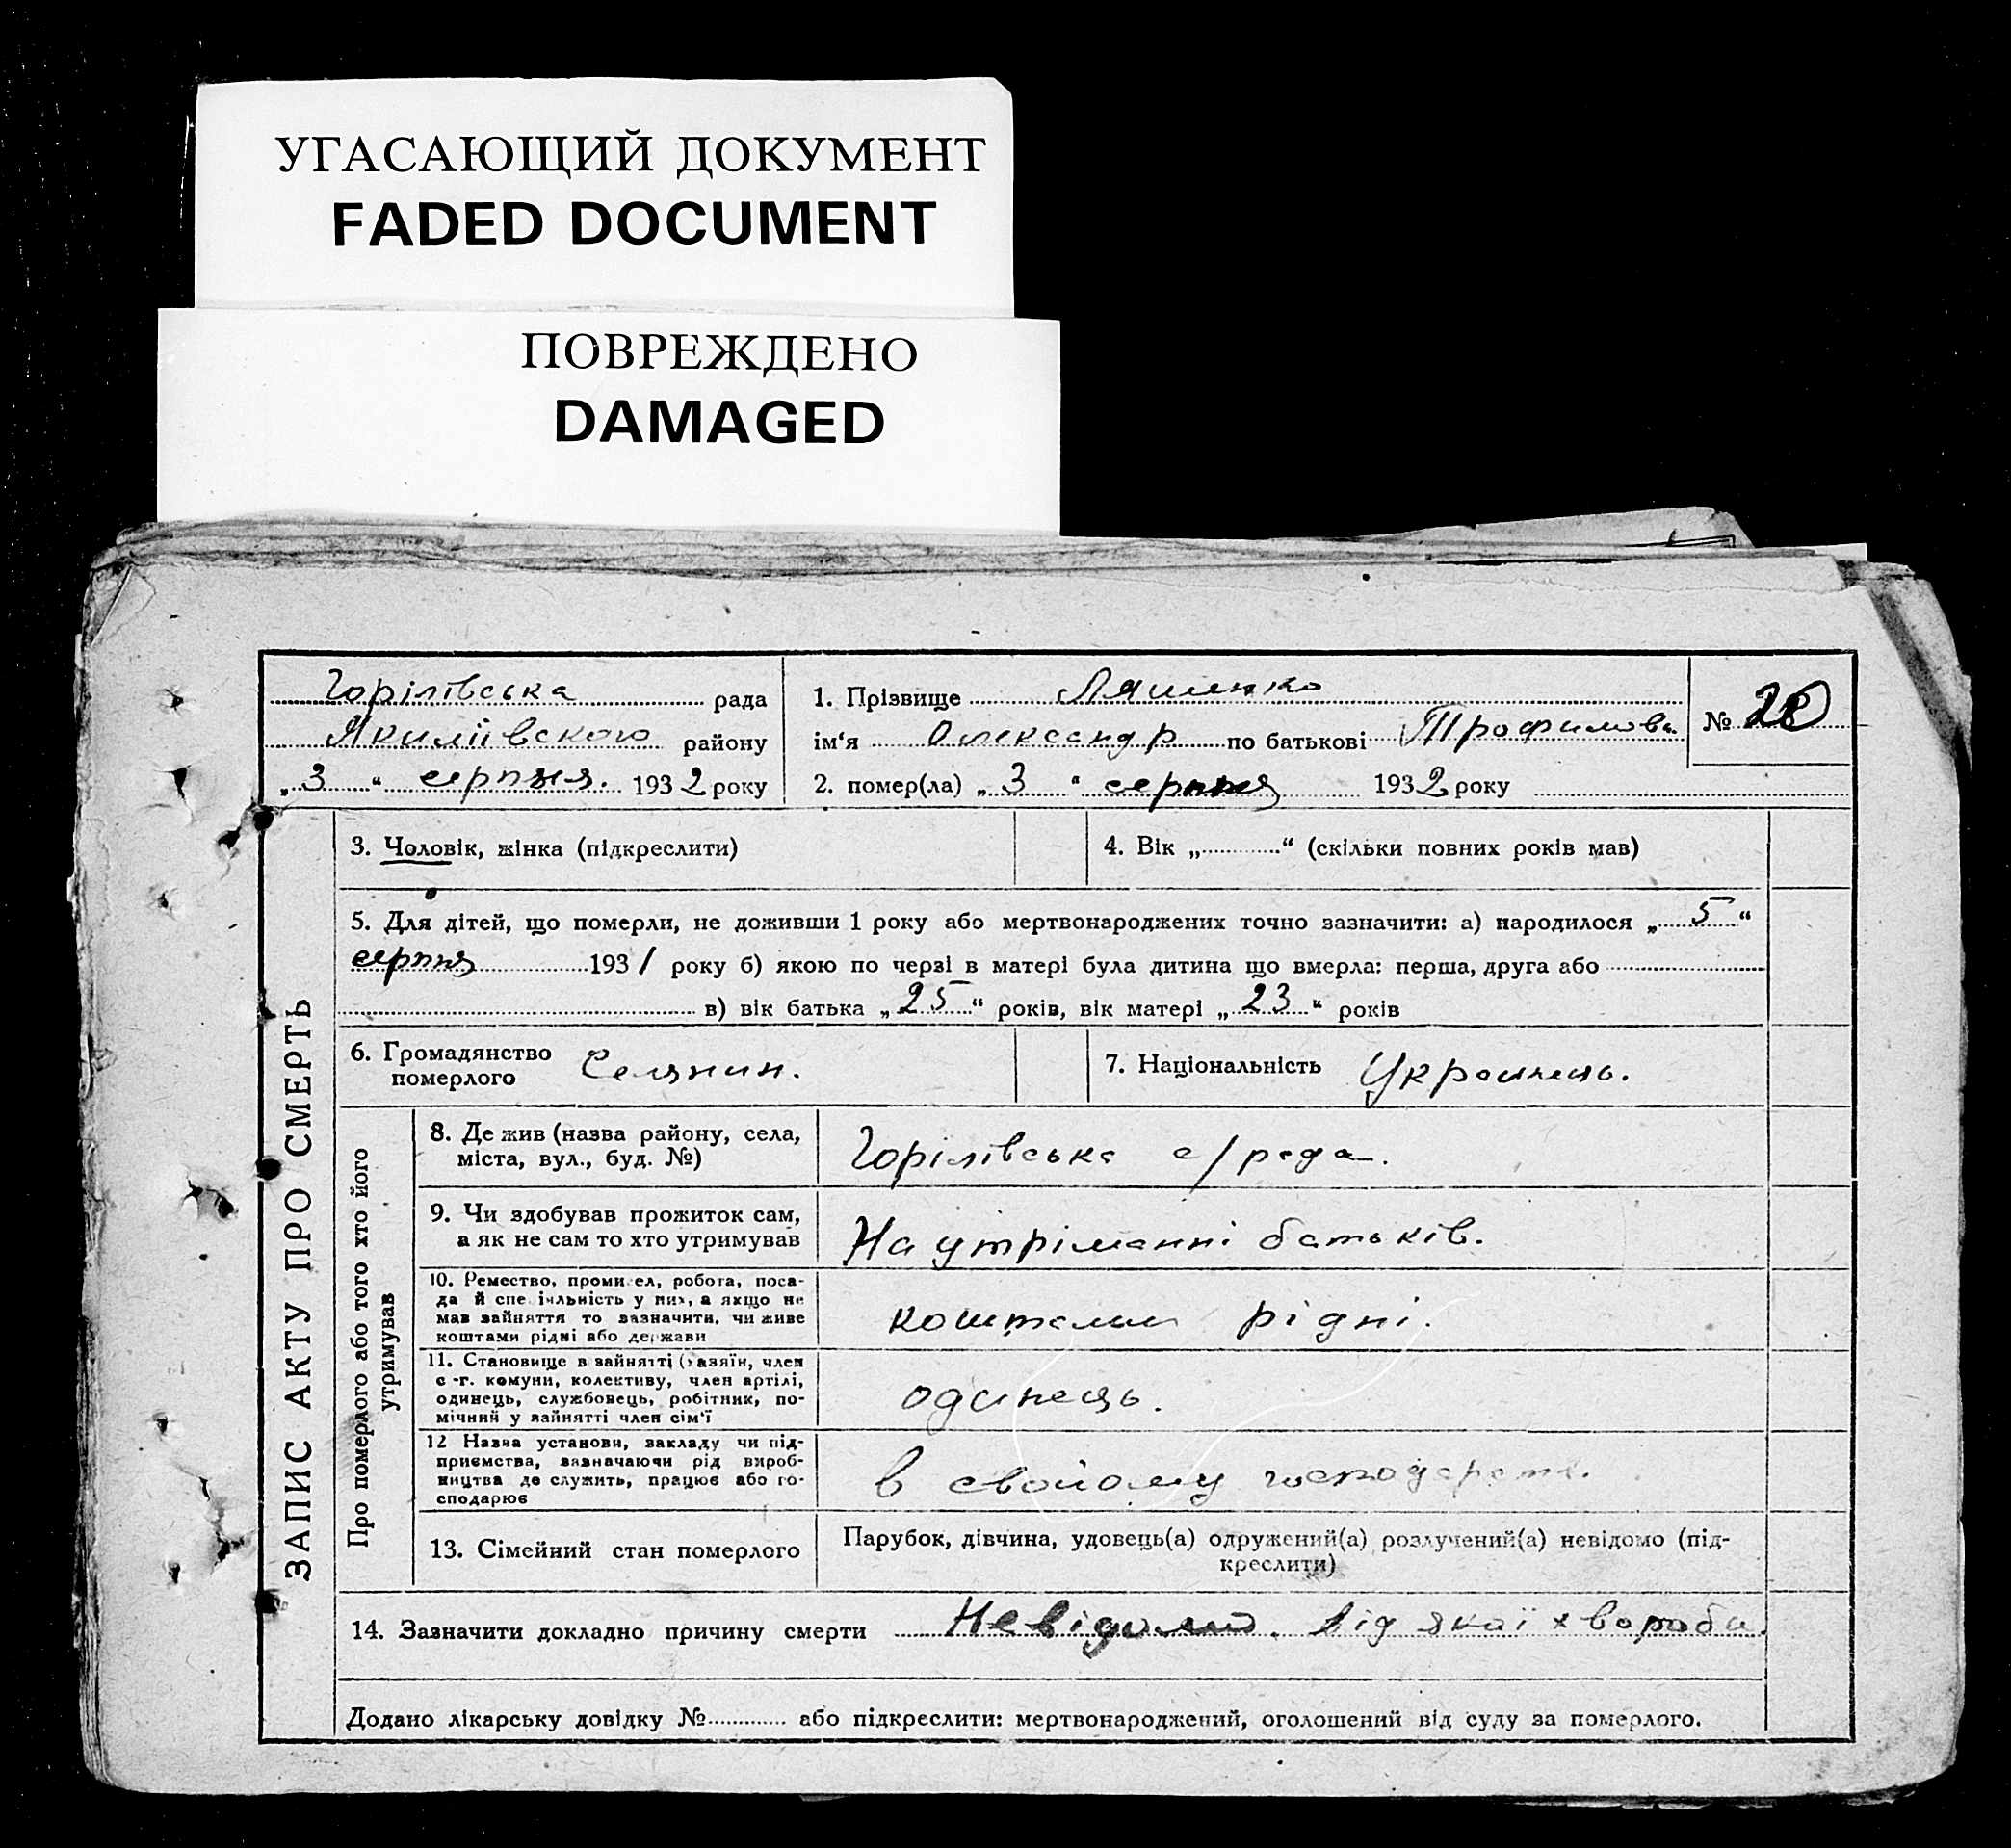 УГАСАЮЩИЙ ДОКУМЕНТ
FADED DOCUMENT
ПОВРЕЖДЕНО
DAMAGED
Горілівська рада
Якиміївского району
„3“ серпня. 1932 року
1. Прізвище Ляшенко
ім‘я Олександр по батькові Трофимов.
2. помер(ла) „3“ серпня 1932 року
№
ЗАПИС АКТУ ПРО СМЕРТЬ
3. Чоловік, жінка (підкреслити)
4. Вік „............“ (скільки повних років мав)
5. Для дітей, що померли, не доживши 1 року або мертвонароджених точно зазначити: а) народилося „5“
серпня 1931 року б) якою по черзі в матері була дитина що вмерла: перша, друга або
в) вік батька „25“ років, вік матері „23“ років
6. Громадянство
померлого Селянин.
7. Національність Українець.
Про померлого або того хто його
утримував
8. Де жив (назва району, села,
міста, вул., буд. №)
Горілівська с/рада.
9. Чи здобував прожиток сам,
а як не сам то хто утримував
На утріманні батьків.
10. Ремество, промисел, робота, поса-
да й спеціяльність у них, а якщо не
мав зайняття то зазначити, чи живе
коштами рідні або держави
коштами рідні.
11. Становище в зайнятті (хазяїн, член
с-г. комуни, колективу, член артілі,
одинець, службовець, робітник, по-
мічний у зайнятті член сім‘ї
одинець.
12 Назва установи, закладу чи під-
приємства, зазначаючи рід вироб-
ництва де служить, працює або го-
сподарює
в свойому господарст.
13. Сімейний стан померлого
Парубок, дівчина, удовець(а) одружений(а) розлучений(а) невідомо (під-
креслити)
14. Зазначити докладно причину смерти Невідомо. Від якої хвороби.
Додано лікарську довідку №............ або підкреслити: мертвонароджений, оголошений від суду за померлого.